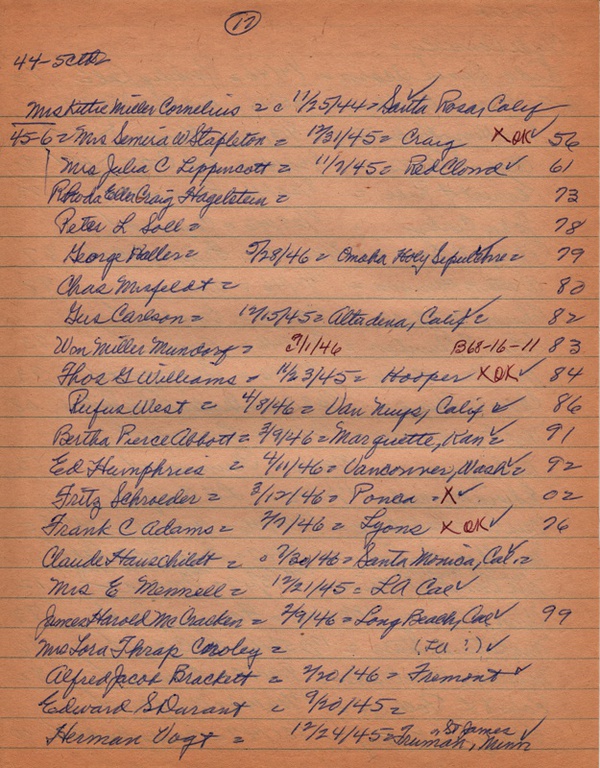 17
44-5
Mrs Kittie Miller Cornelius = 11/25/44 = Santa Rosa, Calif
45-6 = Mrs Semira W Stapleton = 12/31/45 = Craig X OK ✓ 56
Mrs Julia C Lippincott = 11/7/45 = Red Cloud ✓ 61
Rhoda Eller Craig Hagelstein = 73
Peter L Soll = 78
George Haller = /28/46 = Omaha Holy Sepulchre = 79
Chas Misfeldt = 80
Gus Carlson = 12/15/45 = Altadena, Calif = 82
Wm Miller Mundorf = 3/1/46 B68-16-11 83
Thos G Williams = 11/23/45 = Hooper X OK ✓ 84
Rufus West = 4/8/46 = Van Nuys, Calif ✓ 86
Bertha Pierce Abbott = 3/9/46 = Marquette, Kan ✓ 91
Ed Humphries = 4/11/46 = Vancouver, Wash ✓ 92
Fritz Schroeder = 3/12/46 = Ponca = X ✓ 02
Frank C Adams = 2/7/46 = Lyons X OK ✓ 76
Claude Hauschildt = /30/46 = Santa Monica, Cal. =
Mrs E Mennell = 12/21/45 = LA Cal ✓
James Harold McCracken = 2/9/46 = Long Beach, Cal ✓ 99
Mrs Lora Thrap = (La ?) ✓
Alfred Jacob Brackett = 2/20/46 = Fremont ✓
Edward S Durant = 9/20/45 =
Herman Vogt = 12/24/45 = Truman, or St James Minn ✓